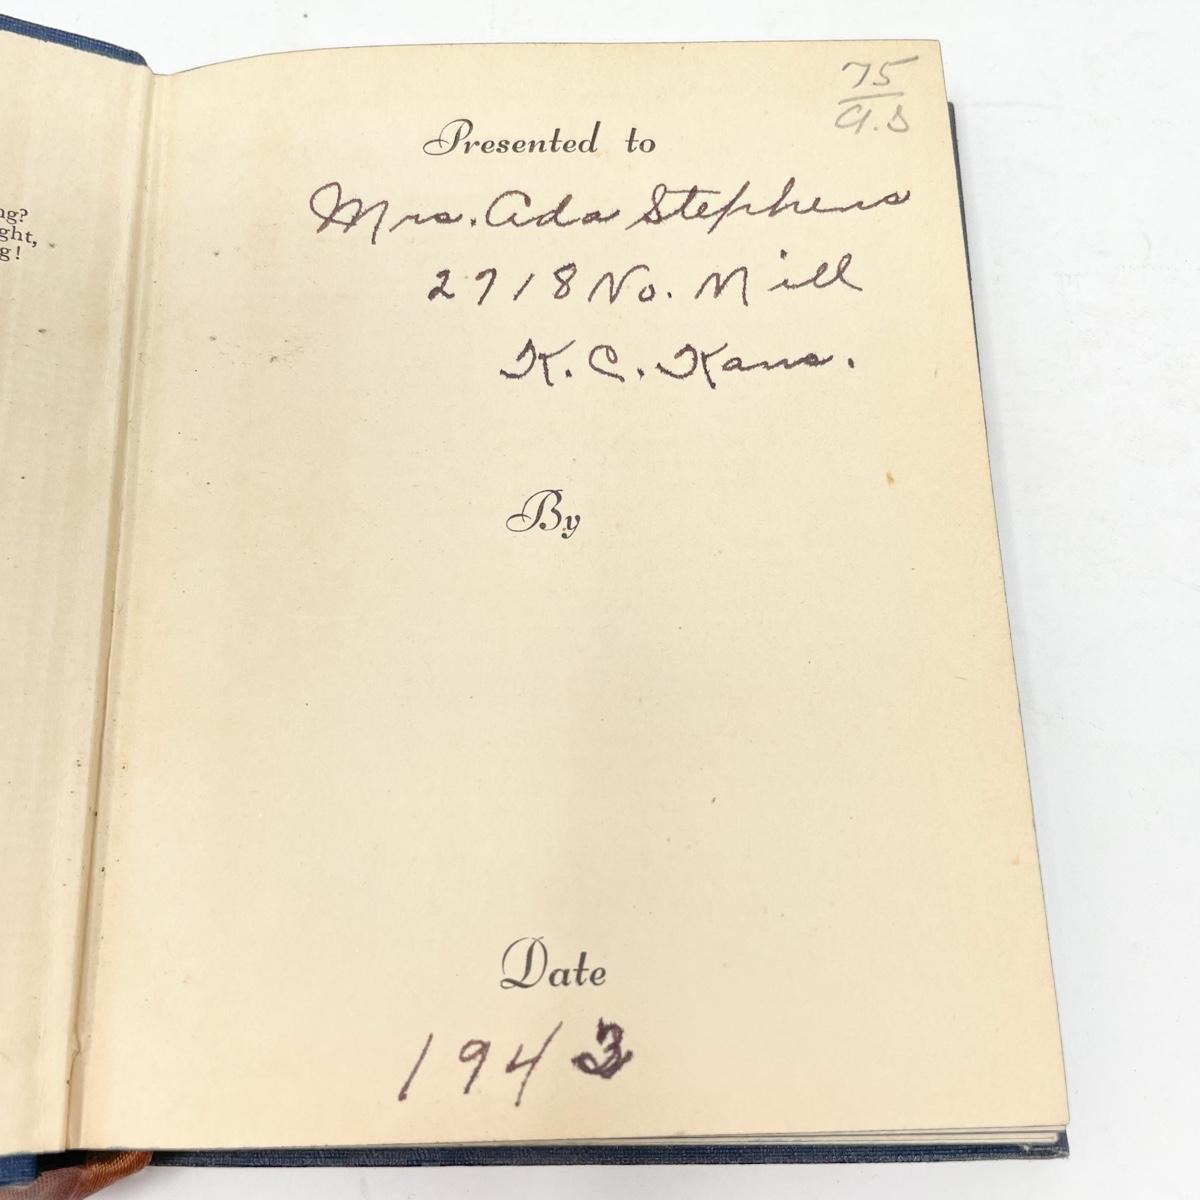 ng?
ght,
g!
75
a.s
Presented to
Mrs. Ada Stephens
2718 No. Mill
K. C. Kans.
By
Date
1943